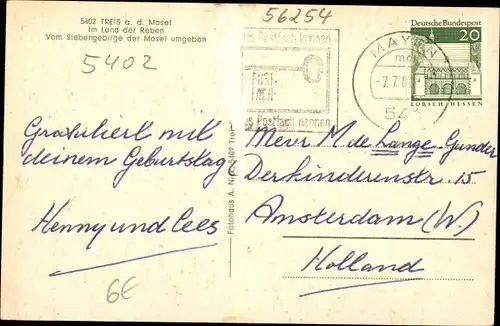 5402 TREIS a. d. Mosel
Im Land der Reben
Vom Siebengebirge der Mosel umgeben
5402
56254
Postfach kennen
POST-
FACH
Postfach nennen
MAYEN
-7.7.
54
Deutsche Bundespost
20
LORSCH/HESSEN
Gratuliert mit
deinem Geburtstag
Henny und Cees
6€
Fotohaus A. 5402 Treis
Mevr M de Lange-Gunder
Derkinderenstr. 15
Amsterdam (W.)
Holland